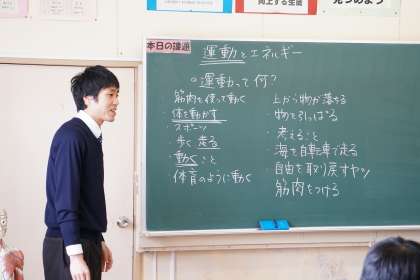 向上する生徒
見つめよう
本日の課題
運動とエネルギー
○運動って何?
筋肉を使って動く
・体を動かす
スポーツ
歩く 走る
動くこと
体育のように動く
上から物が落ちる
・物を引っぱる
・考えること
・海を自転車で走る
・自由を取り戻すヤツ
筋肉をつける